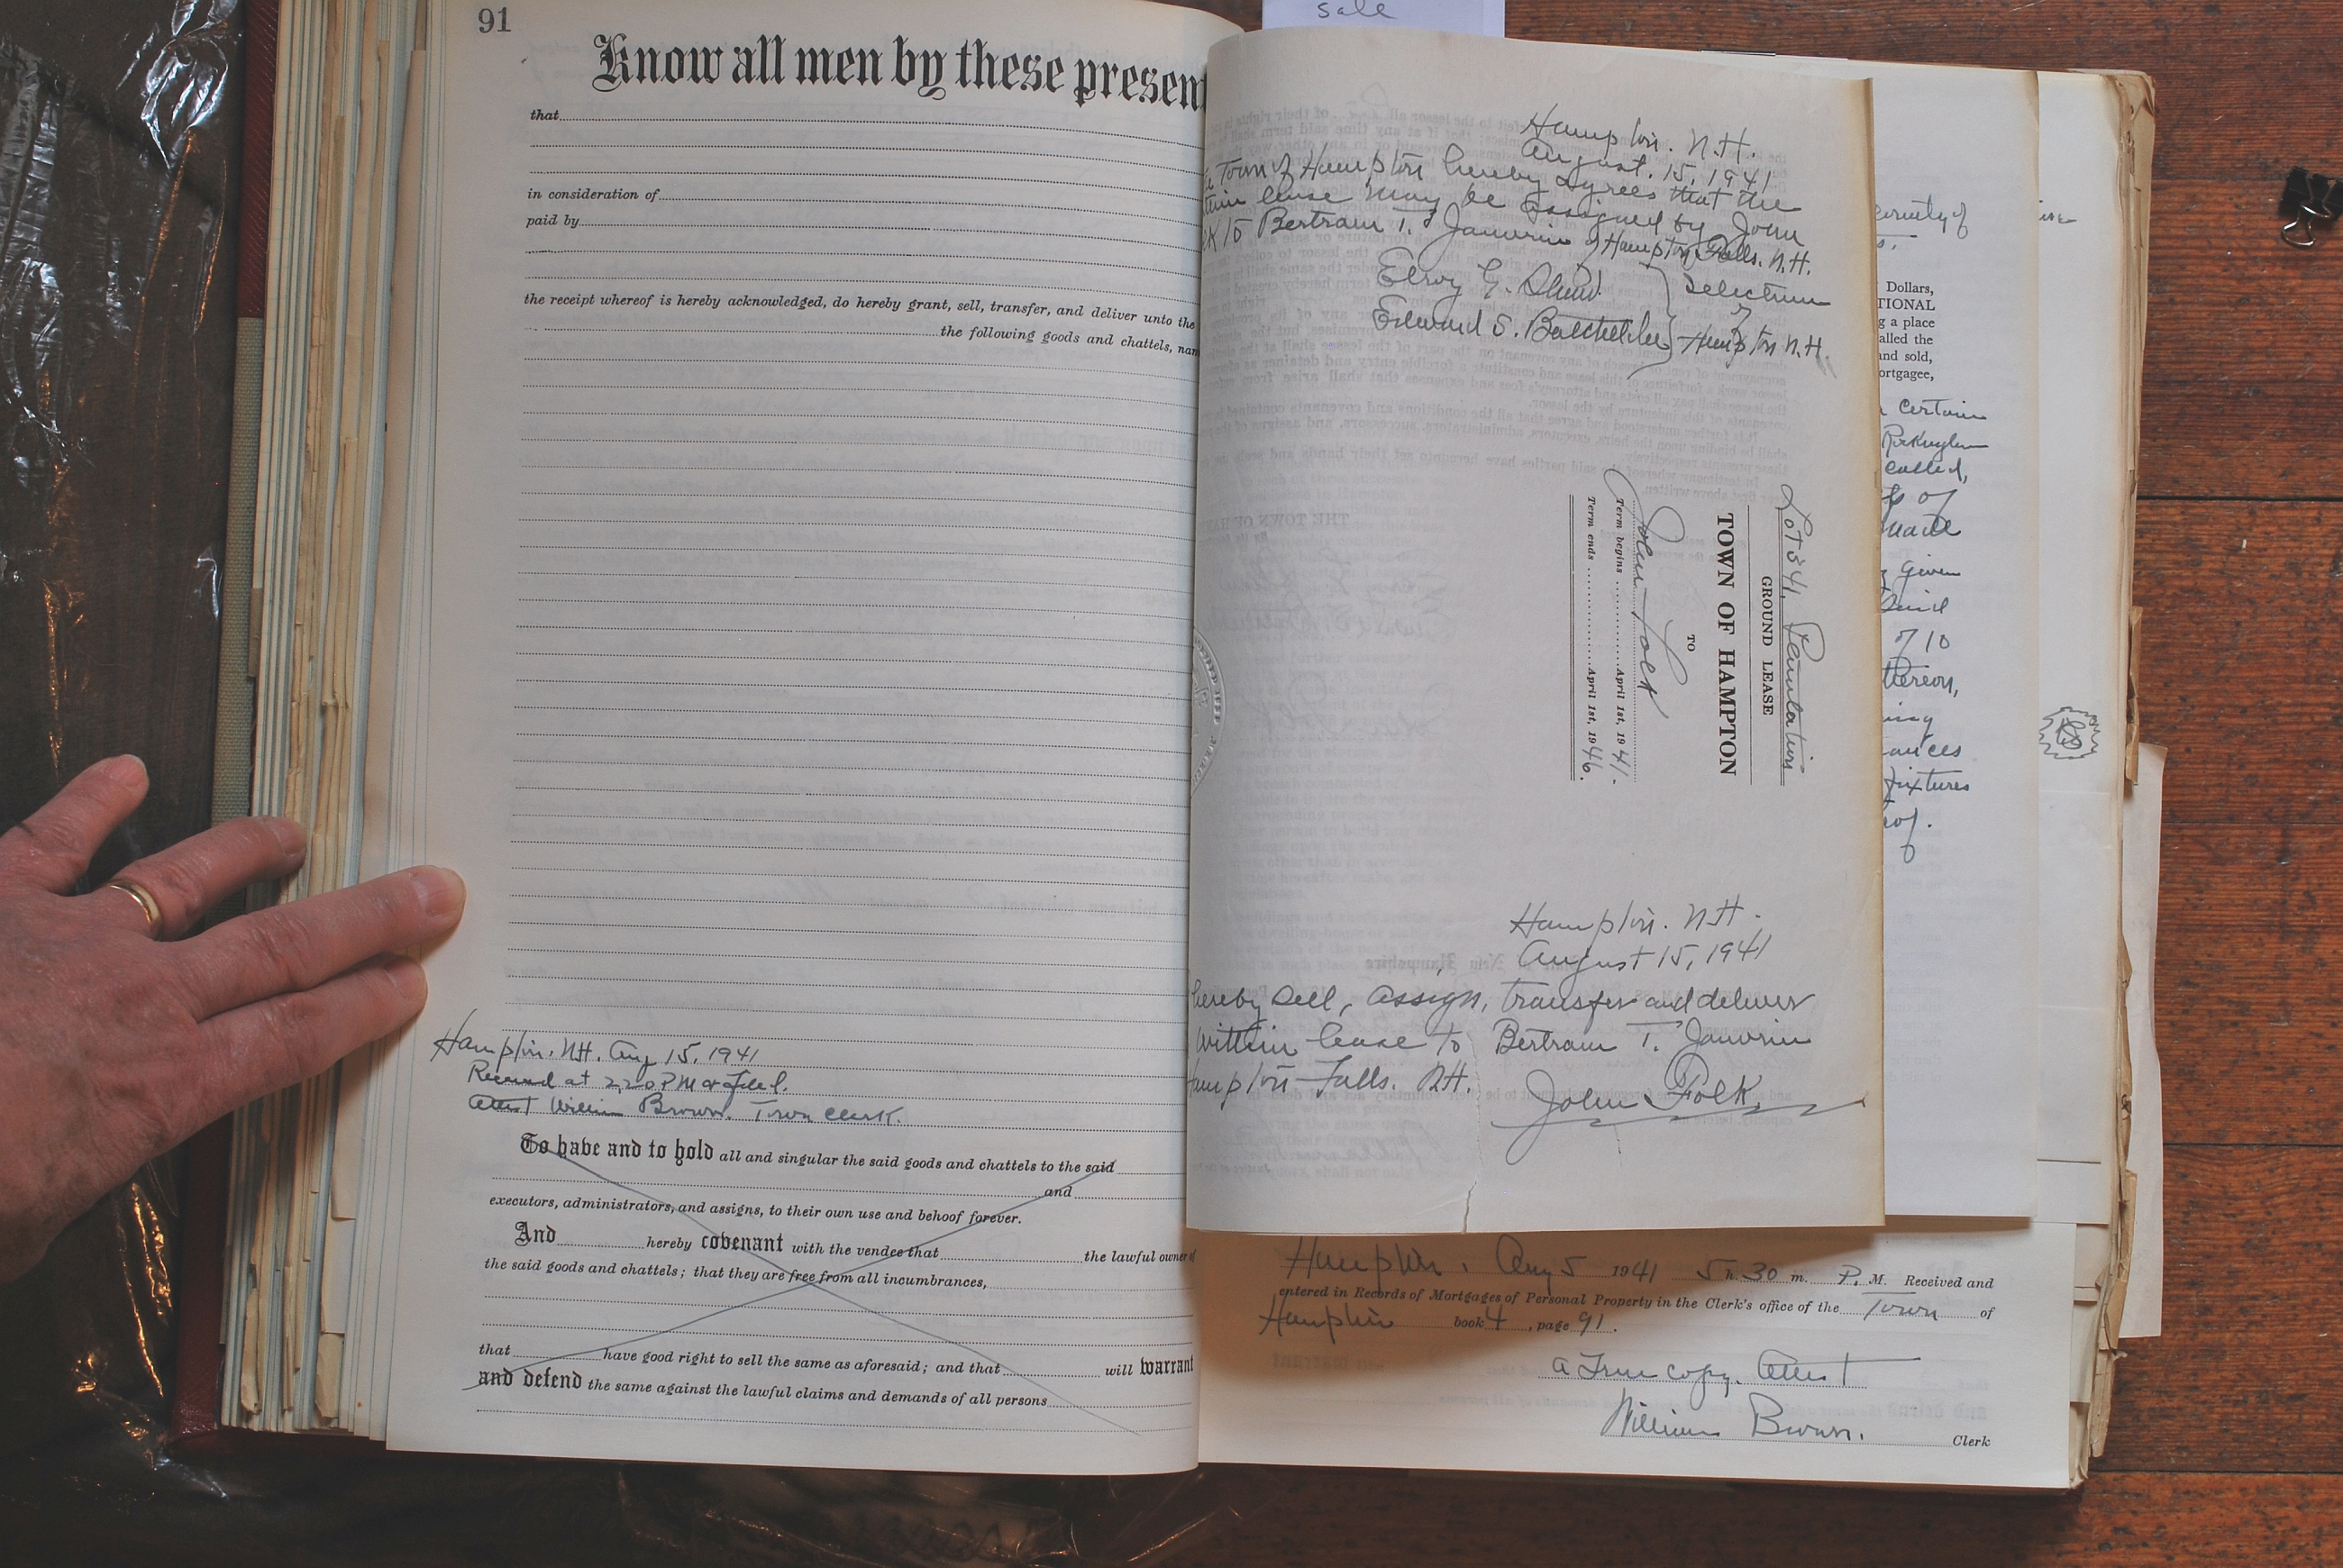 91
sale
Know all men by these present
that
in consideration of
paid by
the receipt whereof is hereby acknowledged, do hereby grant, sell, transfer, and deliver unto the
the following goods and chattels, nam
Hampton. N.H. Aug 15, 1941
Received at 2,20 P.M & filed.
Attest William Brown. Town Clerk.
To have and to hold all and singular the said goods and chattels to the said
and
executors, administrators, and assigns, to their own use and behoof forever.
And hereby covenant with the vendee that the lawful owner of
the said goods and chattels; that they are free from all incumbrances,
that have good right to sell the same as aforesaid; and that will warrant
and defend the same against the lawful claims and demands of all persons
Hampton. N.H.
August. 15, 1941
Town of Hampton hereby agrees that the
lease may be assigned by John
to Bertram T. Janvrin of Hampton Falls. N.H.
Elroy G. Shaw
Selectmen
of
Edward S. Batchelder
Hampton N.H.
Lot 34, Plantation
GROUND LEASE
TOWN OF HAMPTON
TO
John Folk
Term begins April 1st, 1941.
Term ends April 1st, 1946.
Hampton. N.H.
August 15, 1941
hereby sell, assign, transfer and deliver
within lease to Bertram T. Janvrin
ampton Falls. N.H.
John Folk.
county of
Dollars,
TIONAL
g a place
alled the
and sold,
ortgagee,
certain
called,
of
made
given
said
of 10
thereon,
ances
fixtures
eof.
Hampton. Aug 5 1941 5 h. 30 m. P. M. Received and
entered in Records of Mortgages of Personal Property in the Clerk's office of the Town of
Hampton book 4, page 91.
A True copy. Attest
William Brown. Clerk